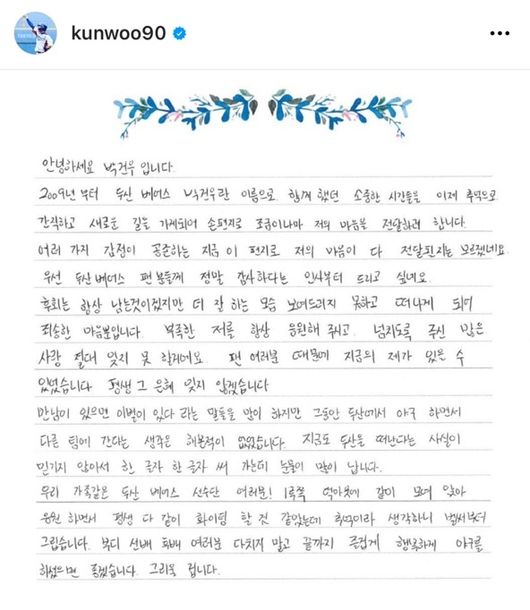 kunwoo90
안녕하세요 박건우 입니다.
2009년 부터 두산 베어스 박건우란 이름으로 함께 했던 소중한 시간들을 이제 추억으로
간직하고 새로운 길을 가게되어 손편지로 조금이나마 저의 마음을 전달하려 합니다.
여러 가지 감정이 공존하는 지금 이 편지로 저의 마음이 다 전달될지는 모르겠네요.
우선 두산베어스 팬 분들께 정말 감사하다는 인사부터 드리고 싶네요.
후회는 항상 남는것이겠지만 더 잘 하는 모습 보여드리지 못하고 떠나게 되어
죄송한 마음뿐입니다. 부족한 저를 항상 응원해 주시고. 넘치도록 주신 많은
사랑 절대 잊지 못 할거에요. 팬 여러분 때문에 지금의 제가 있을 수
있었습니다 평생 그 은혜 잊지 않겠습니다
만남이 있으면 이별이 있다 라는 말들을 많이 하지만 그동안 두산에서 야구 하면서
다른 팀에 간다는 생각은 해본적이 없었습니다. 지금도 두산을 떠난다는 사실이
믿기지 않아서 한 글자 한 글자 써 가는데 눈물이 많이 납니다.
우리 가족같은 두산 베어스 선수단 여러분! 1루쪽 덕아웃에 같이 모여 앉아
응원 하면서 평생 다 같이 화이팅 할 것 같았는데 추억이라 생각하니 벌써부터
그립습니다. 부디 선배 후배 여러분 다치지 말고 끝까지 즐겁게 행복하게 야구를
하셨으면 좋겠습니다. 그리울 겁니다.